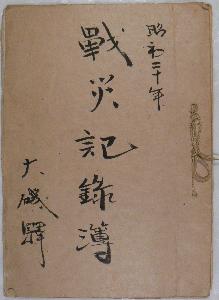 昭和二十年
戰災記錄簿
大磯驛